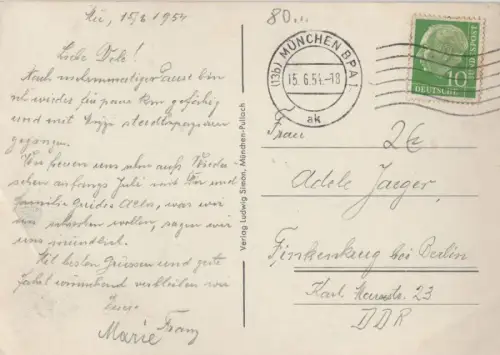 Mü, 15/6 1954
Liebe Dele!
Nach mehrmaliger Pause bin
ich wieder für paar Tage
und mit
gegangen.
Wir freuen uns aber aufs Wieder-
sehen anfangs Juli mit Dir und
Familie was wir
uns wollen, sagen wir
uns mündlich.
Mit besten Grüssen und gute
Fahrt wünschend verbleiben wir
Eure
Marie Franz
Verlag Ludwig Simon, München-Pullach
80.-
(13b) MÜNCHEN BPA 1
15.6.54.-18
ak
10
DEUTSCHE BUNDESPOST
2€
Frau
Adele Jaeger,
Finkenkrug bei Berlin
Karl 23
DDR